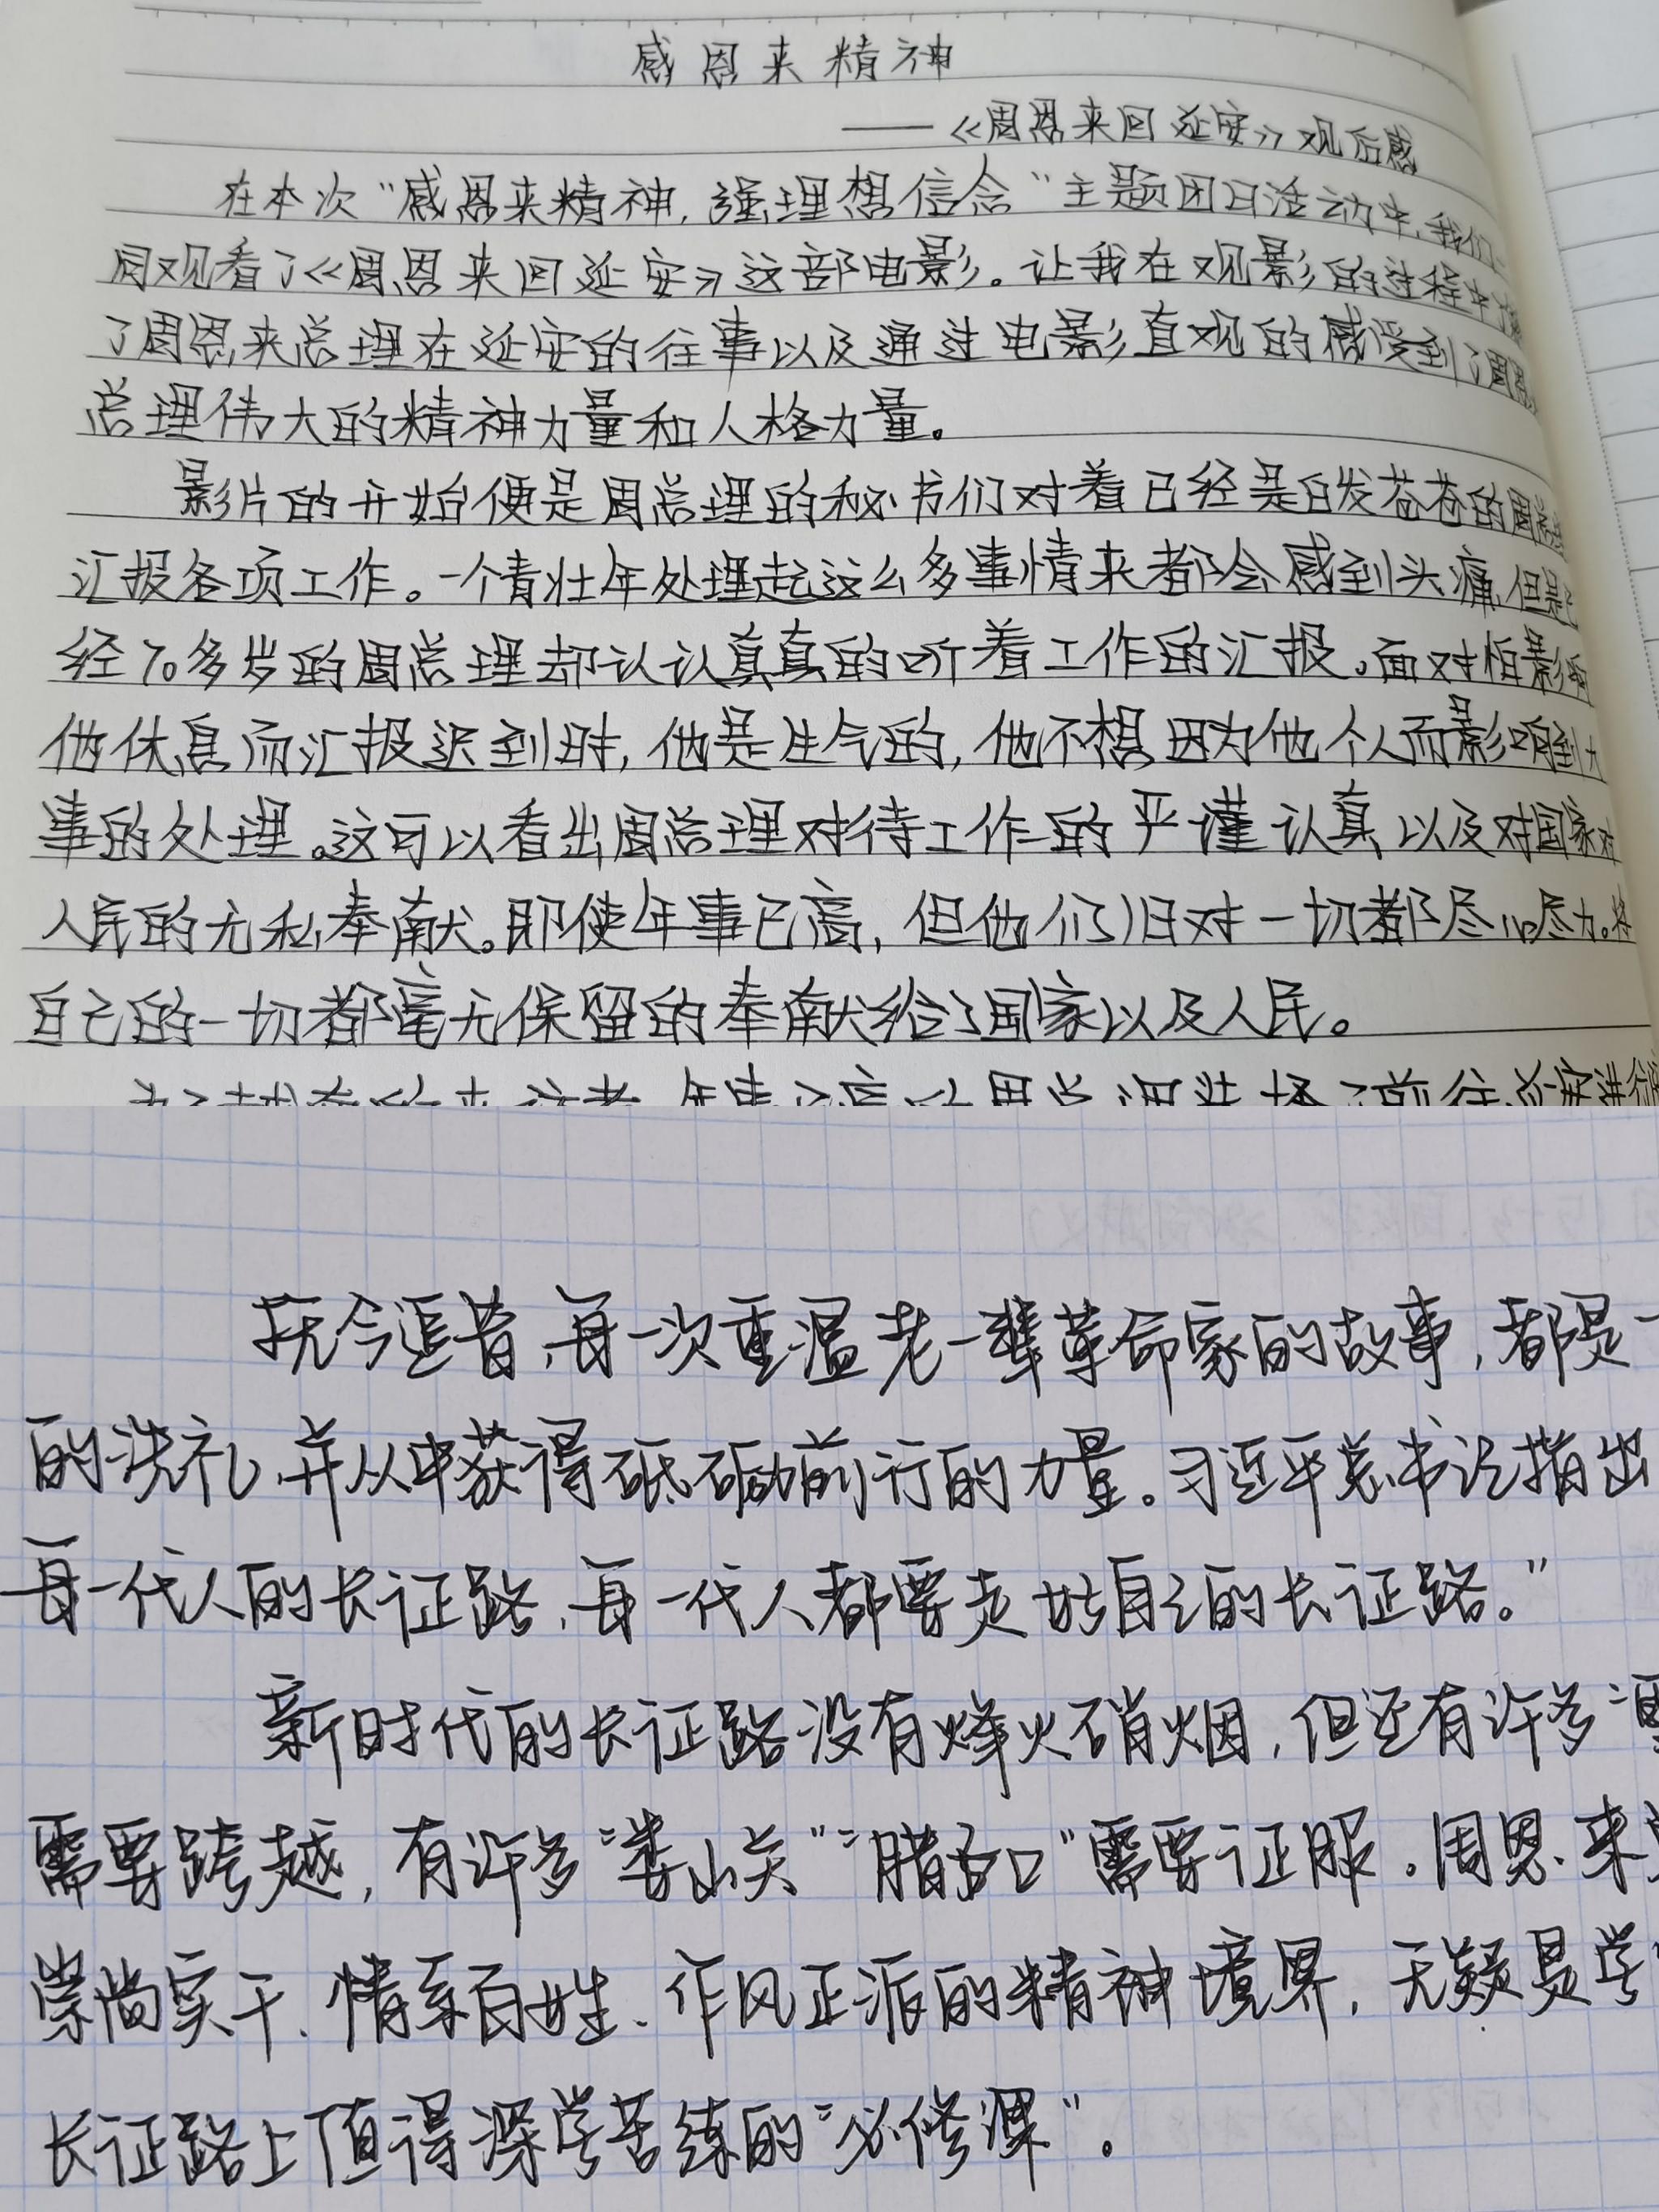 感恩来精神
——《周恩来回延安》观后感
在本次“感恩来精神,强理想信念“主题团日活动中,我们
同观看了《周恩来回延安》这部电影。让我在观影的过程中
了周恩来总理在延安的往事以及通过电影直观的感受到了周恩
总理伟大的精神力量和人格力量。
影片的开始便是周总理的秘书们对着已经是白发苍苍的周总
汇报各项工作。一个青壮年处理起这么多事情来都会感到头痛,但是
经70多岁的周总理却认认真真的听着工作的汇报。面对怕影响
他休息而汇报迟到时,他是生气的,他不想因为他个人而影响到大
事的处理。这可以看出周总理对待工作的严谨认真以及对国家对
人民的无私奉献。即使年事已高,但他仍旧对一切都尽心尽力。将
自己的一切都毫无保留的奉献给了国家以及人民。
年事已高的周总理选择了前往延安进行
抚今追昔,每一次重温老一辈革命家的故事,都是一
的洗礼,并从中获得砥砺前行的力量。习近平总书记指出
每一代人的长征路,每一代人都要走好自己的长征路。”
新时代的长征路没有烽火硝烟,但还有许多“雪
需要跨越,有许多“娄山关”“腊子口”需要证服。周恩来
崇尚实干、情系百姓、作风正派的精神境界,无疑是学
长征路上值得深学苦练的“必修课”。